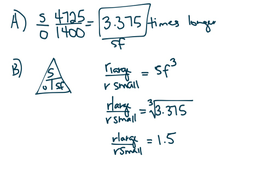 A) S/O 4725/1400 = 3.375 times larger
SF
B) S O SF r large / r small = SF³
r large / r small = ³√3.375
r large / r small = 1.5